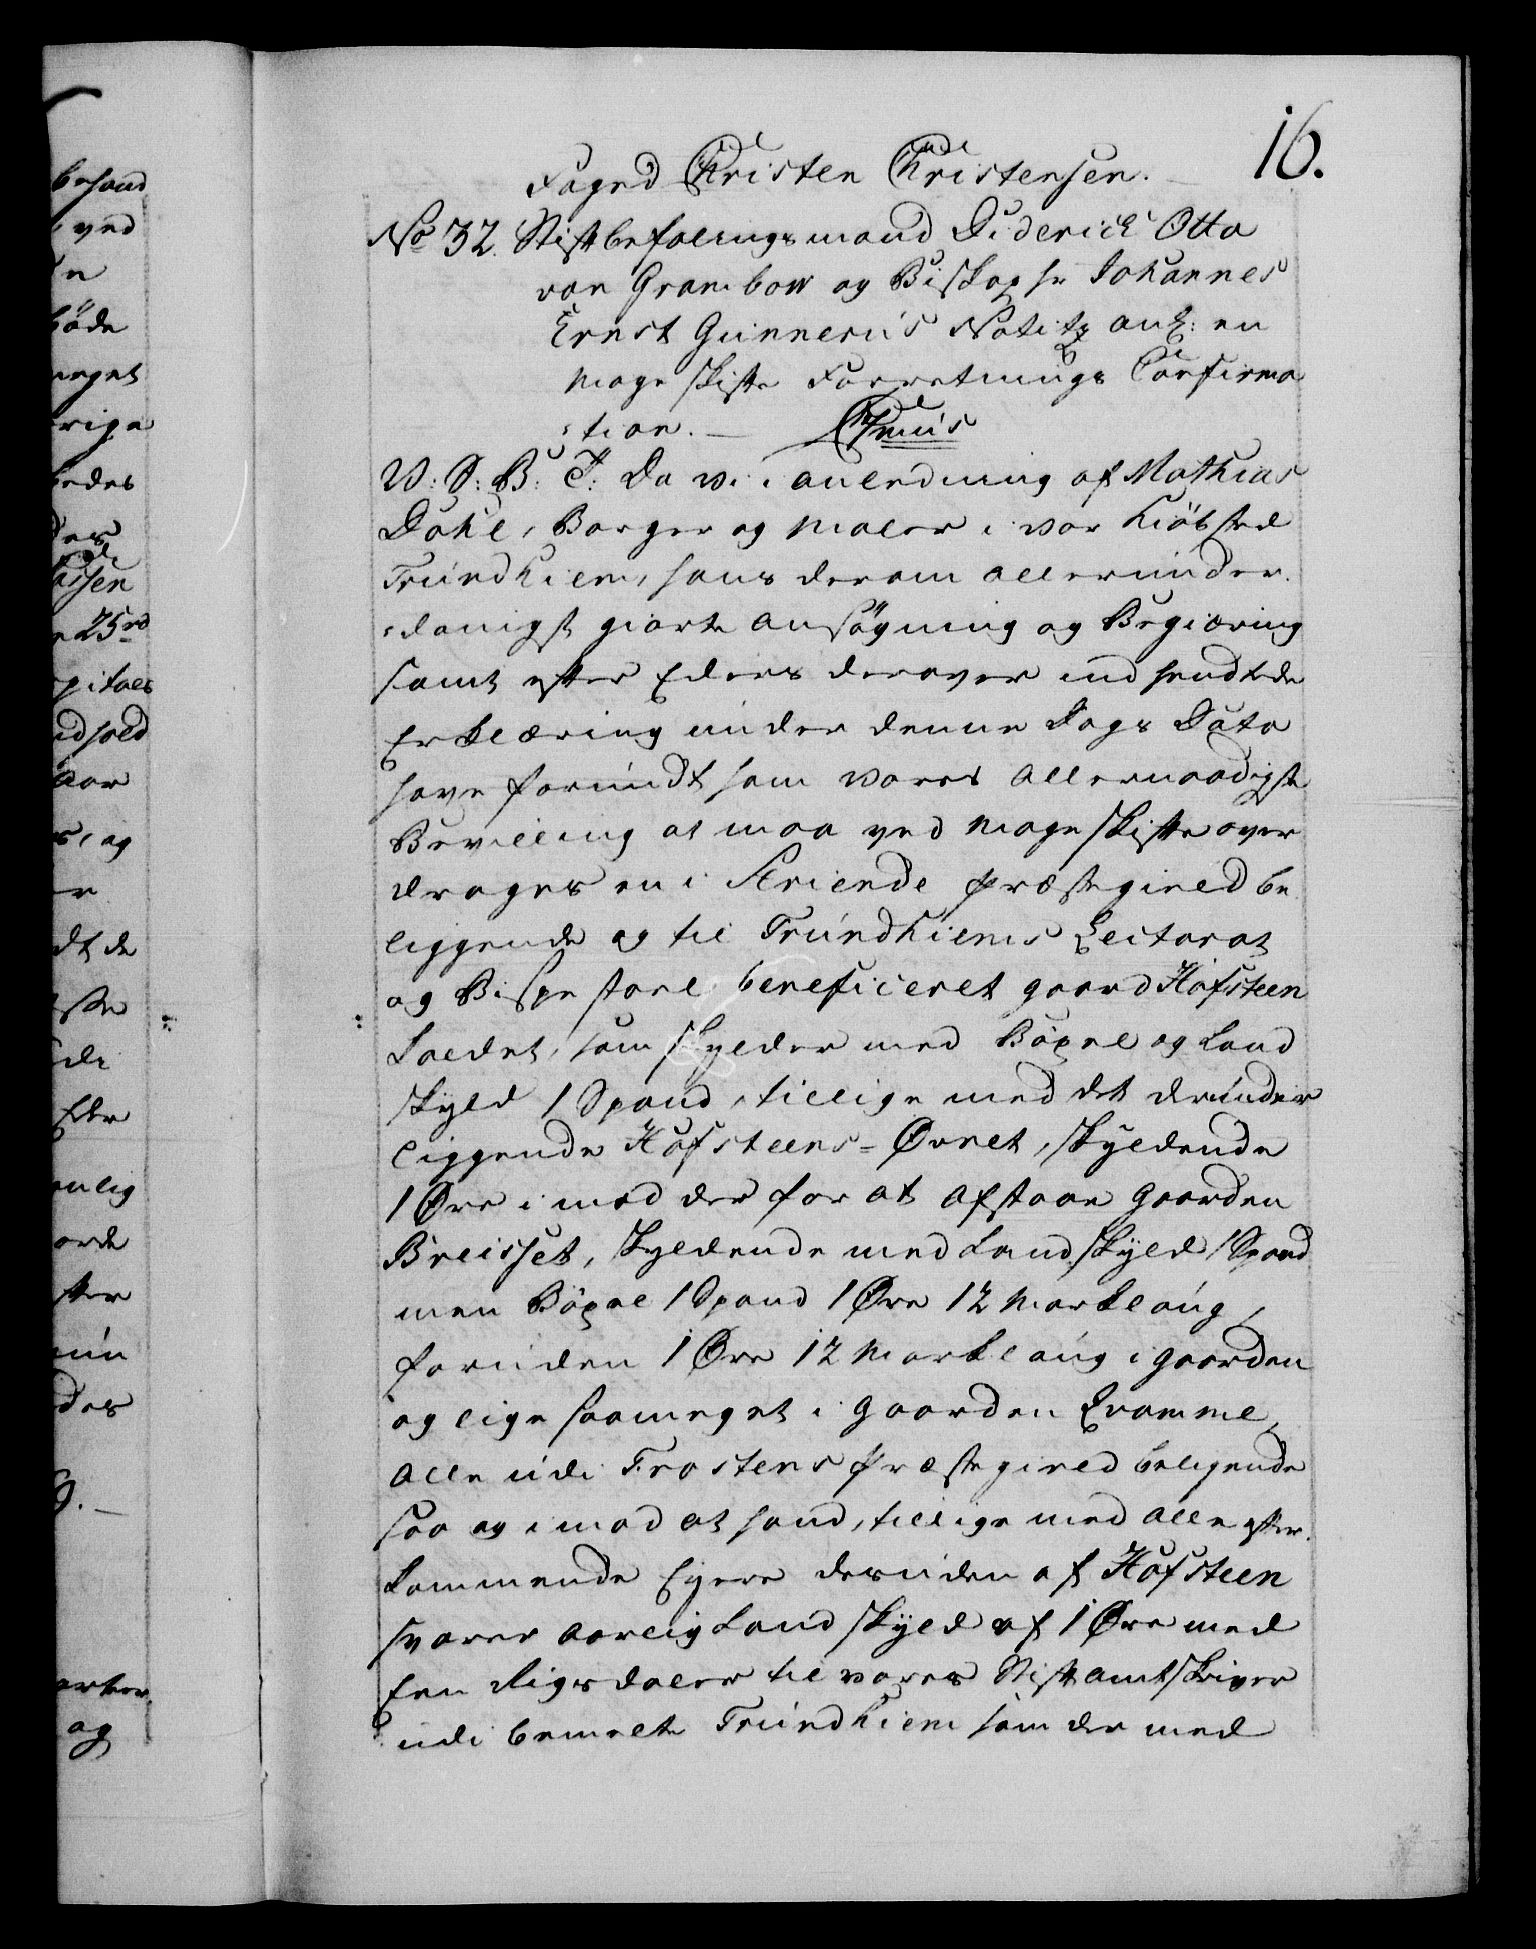 16.
Foged Christen Christensen.
No 32. Stiftbefalingsmand Diderich Otto
von Grambow og Biskop hr Johannes
Ernst Gunnerus Notitz ang: en
Mageskifte Forretnings Confirma
=tion. — Cþmus
V: S: B: T: Da vi i anledning af Mathias
Dahl, Borger og Maler i vor Kiöbsted
Trundhiem, hans derom allerunder=
=danigst giorte Ansøgning og Begiæring
samt efter Eders derover indsendtede
Erklæring under denne Dags Dato
have forundt ham vores allernaadigste
Bevilling at maa ved Mageskifte over
drages en i Støriende Præstegield be
liggende og til Trundhiems Lectorat
og Bispestoel beneficeret gaard Hofsteen
kaldet, som skylder med Bøxel og Land
skyld 1 Spand, tillige med det derunder
liggende Hofsteens=Øvret, skyldende
1 Øre i mod derfor at afstaae gaarden
Breisset, skyldende med Landskyld 1 Spand
men Bøxel 1 Spand 1 Øre 12 Marklaug,
foruden 1 Øre 12 Marklaug i gaarden
og lige saameget i Gaarden Qvamme,
alle udi Frostens Præstegield beligende
saa og imod at hand, tillige med alle efter=
kommende Eyere desuden af Hofsteen
svarer aarlig Landskyld af 1 Øre med
Een Rigsdaler til vores Stiftamtskriver
udi bemelte Trundhiem som der med